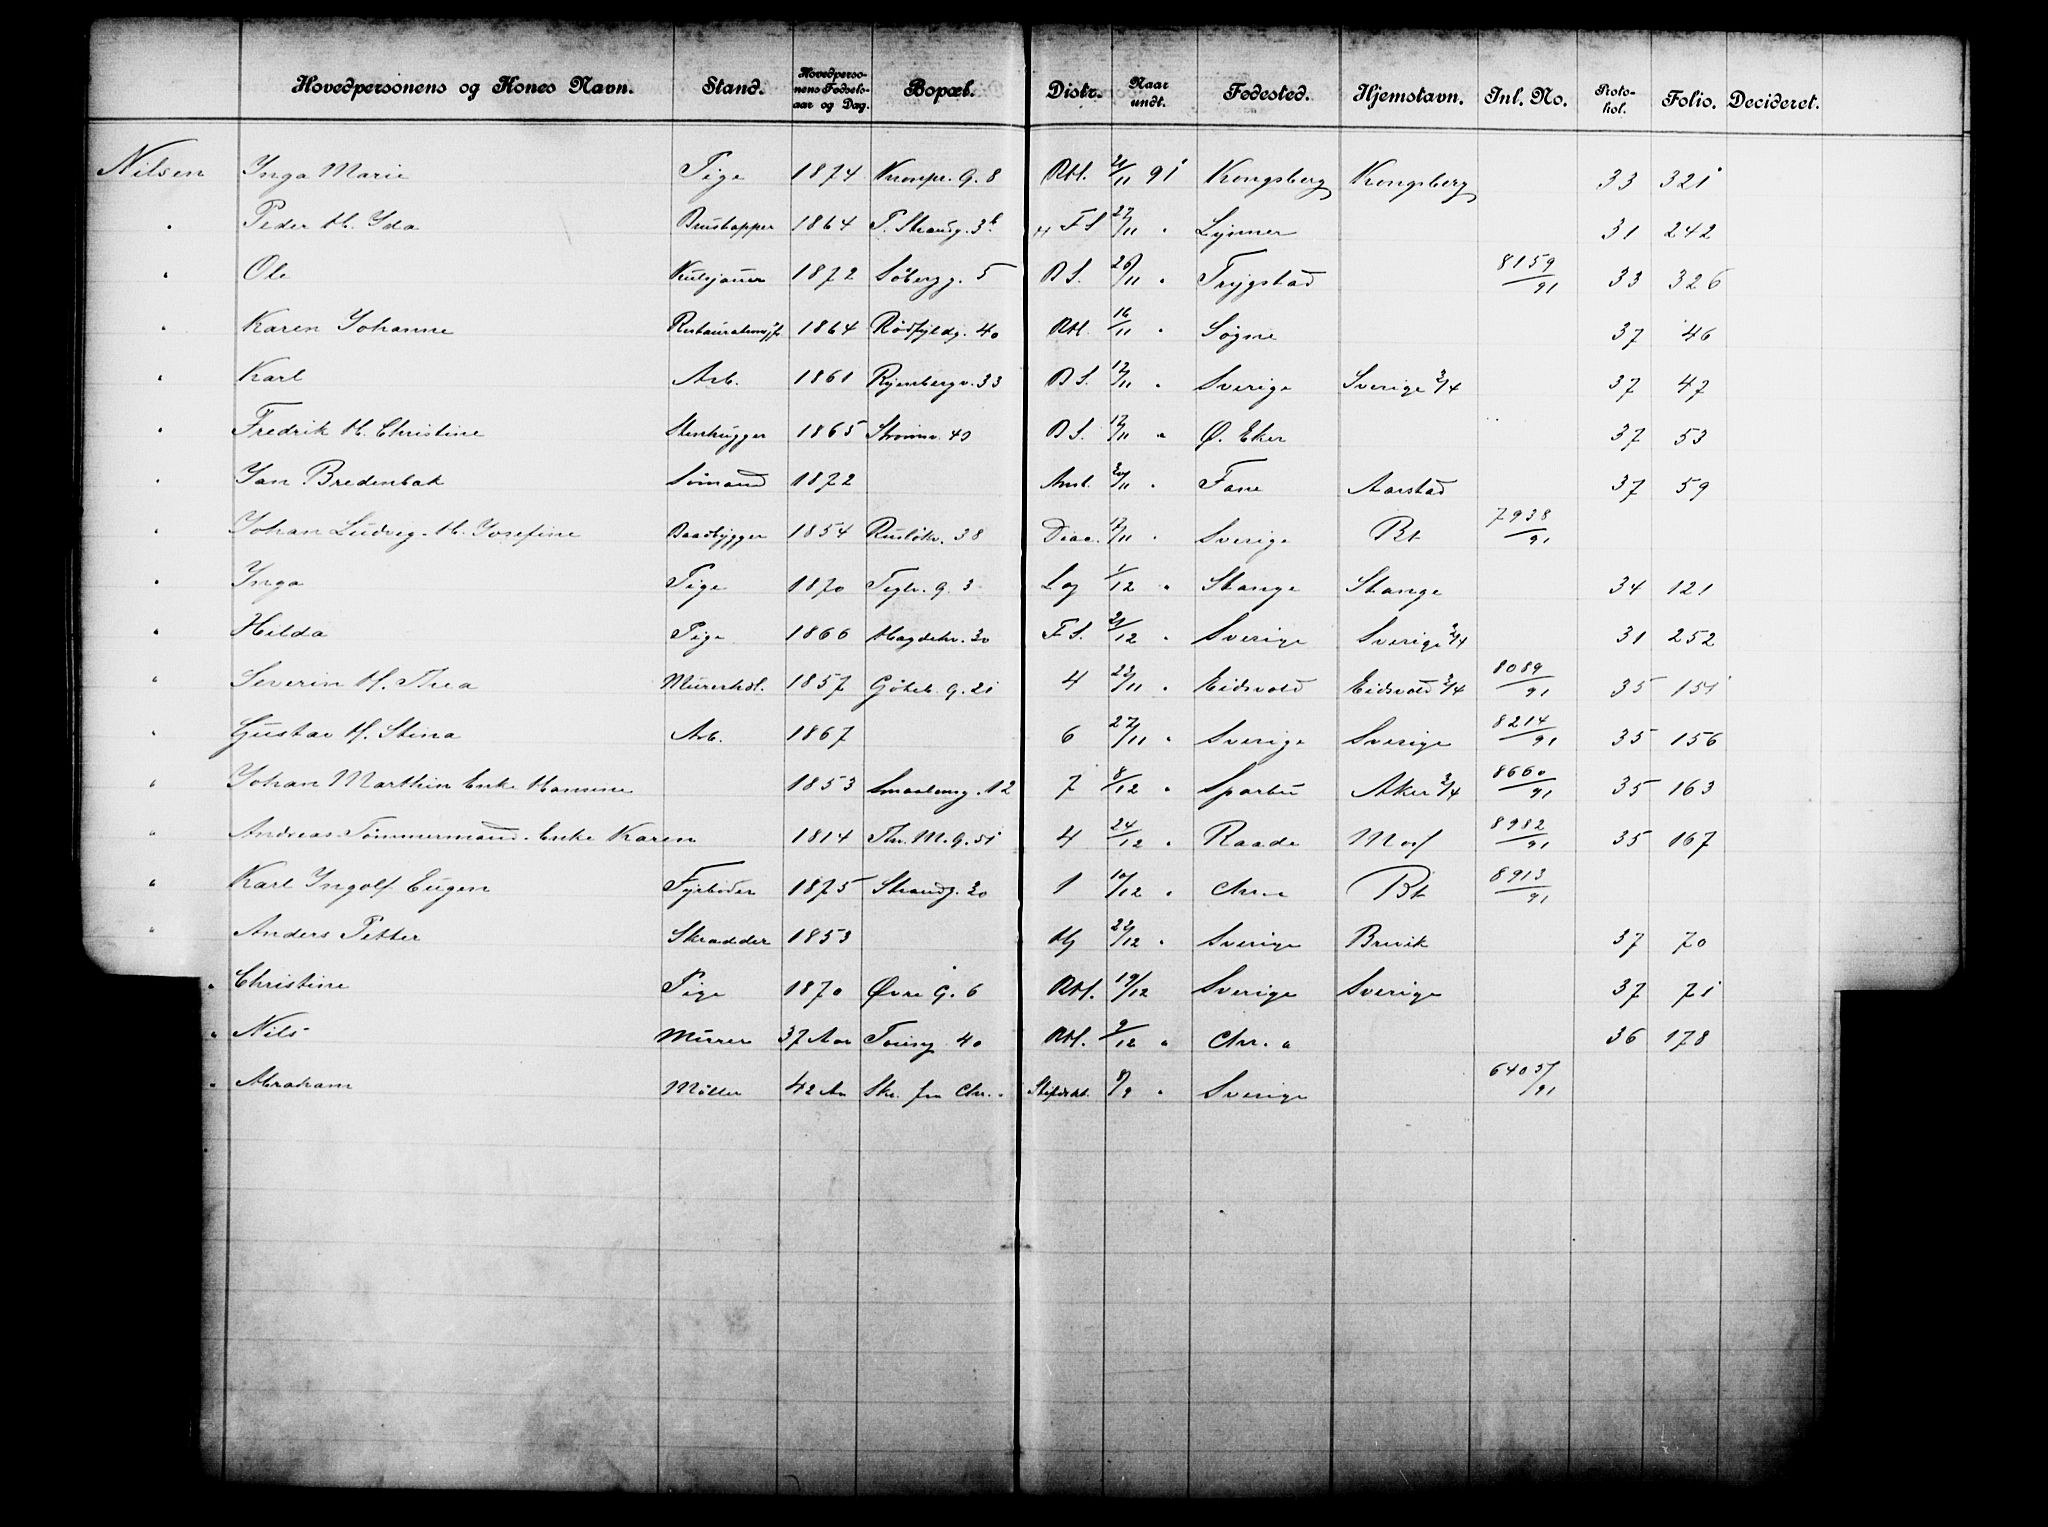 Hovedpersonens og Kones Navn. Stand. Hovedpersonens Fødselsaar og Dag. Bopæl. Distr. Naar undt. Fødested. Hjemstavn. Inl. No. Protokol. Folio. Decideret.
Nilsen Inga Marie Pige 1874 Kronpr. G. 8 RH. 21/11 91 Kongsberg Kongsberg 33 321
" Peder H. Ida Brustapper 1864 P. Strandg. 3b 4 F S 27/11 " Lynner 31 242
" Ole 1872 Søbergg. 5 B S. 28/11 " Trygstad 8159/91 33 326
" Karen Johanne 1864 Rødfyldg. 40 RH. 16/11 " Søgne 37 46
" Karl Arb. 1861 Ryenbergv. 33 B S. 12/11 " Sverige Sverige 3/4 37 47
" Fredrik H. Christine Stenhugger 1865 Strømsv. 49 B S. 17/11 " Ø. Eker 37 53
" Jan Bredenbak Sømand 1872 Anst. 20/11 " Fane Aarstad 37 59
" Johan Ludvig H. Josefine Baadbygger 1854 Rusløkv. 38 Diac. 17/11 " Sverige Bt 7938/91
" Inga Pige 1870 Teglv. G. 3 Lg 1/12 " Stange Stange 34 121
" Hilda Pige 1866 Hagdehv. 20 F S. 29/12 " Sverige Sverige 3/4 31 252
" Severin H. Thea Murerhdl. 1857 Göteb. G. 21 4 23/11 " Eidsvold Eidsvold 3/4 8089/91 35 151
" Gustav H. Stina Arb. 1867 6 27/11 " Sverige Sverige 8214/91 35 156
" Johan Marthin Enke Hansine 1853 Smaalensg. 12 7 8/12 " Sparbu Aker 3/4 8660/91 35 163
" Andreas Tømmermand. Enke Karen 1814 Thv. M. G. 51 4 24/12 " Raade Mos 8982/91 35 167
" Karl Ingolf Eugen Fyrbøder 1875 Strandg. 20 1 10/12 " Chr.a Bt 8913/91
" Anders Petter Skrædder 1853 Hj 22/12 " Sverige Brevik 37 70
" Christine Pige 1870 Øvre G. 6 RH. 19/12 Sverige Sverige 37 71
" Nils Murer 37 Aar 40 RH. 9/12 " Chr. a 36 178
" Abraham Møller 42 Aar Skr. fra Chr. a Stiftdir. 8/9 " Sverige 6405/91